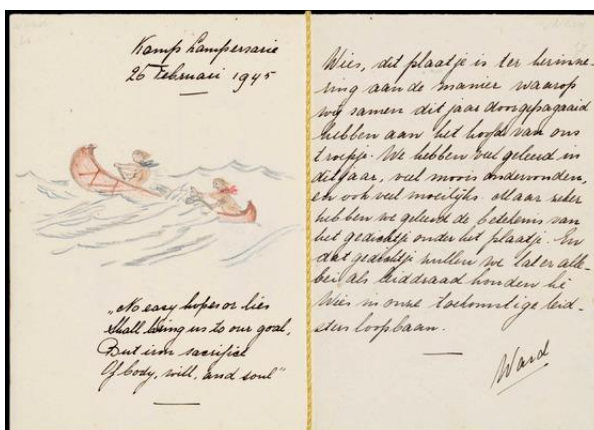 Kamp Lampersarie
26 Februari 1945
"No easy hopes or lies
Shall bring us to our goal,
But iron sacrifice
Of body, will, and soul"
Wies, dit plaatje is ter herinne-
ring aan de manier waarop
wij samen dit jaar doorgepagaaid
hebben aan het hoofd van ons
troepje. We hebben veel geleerd in
dit jaar, veel moois ondervonden,
en ook veel moeilijks. Maar zeker
hebben we geleerd de betekenis van
het gedichtje onder het plaatje. En
dat gedichtje zullen we later alle-
bei als leiddraad houden hè
Wies in onze toekomstige leid-
sters loopbaan.
Ward